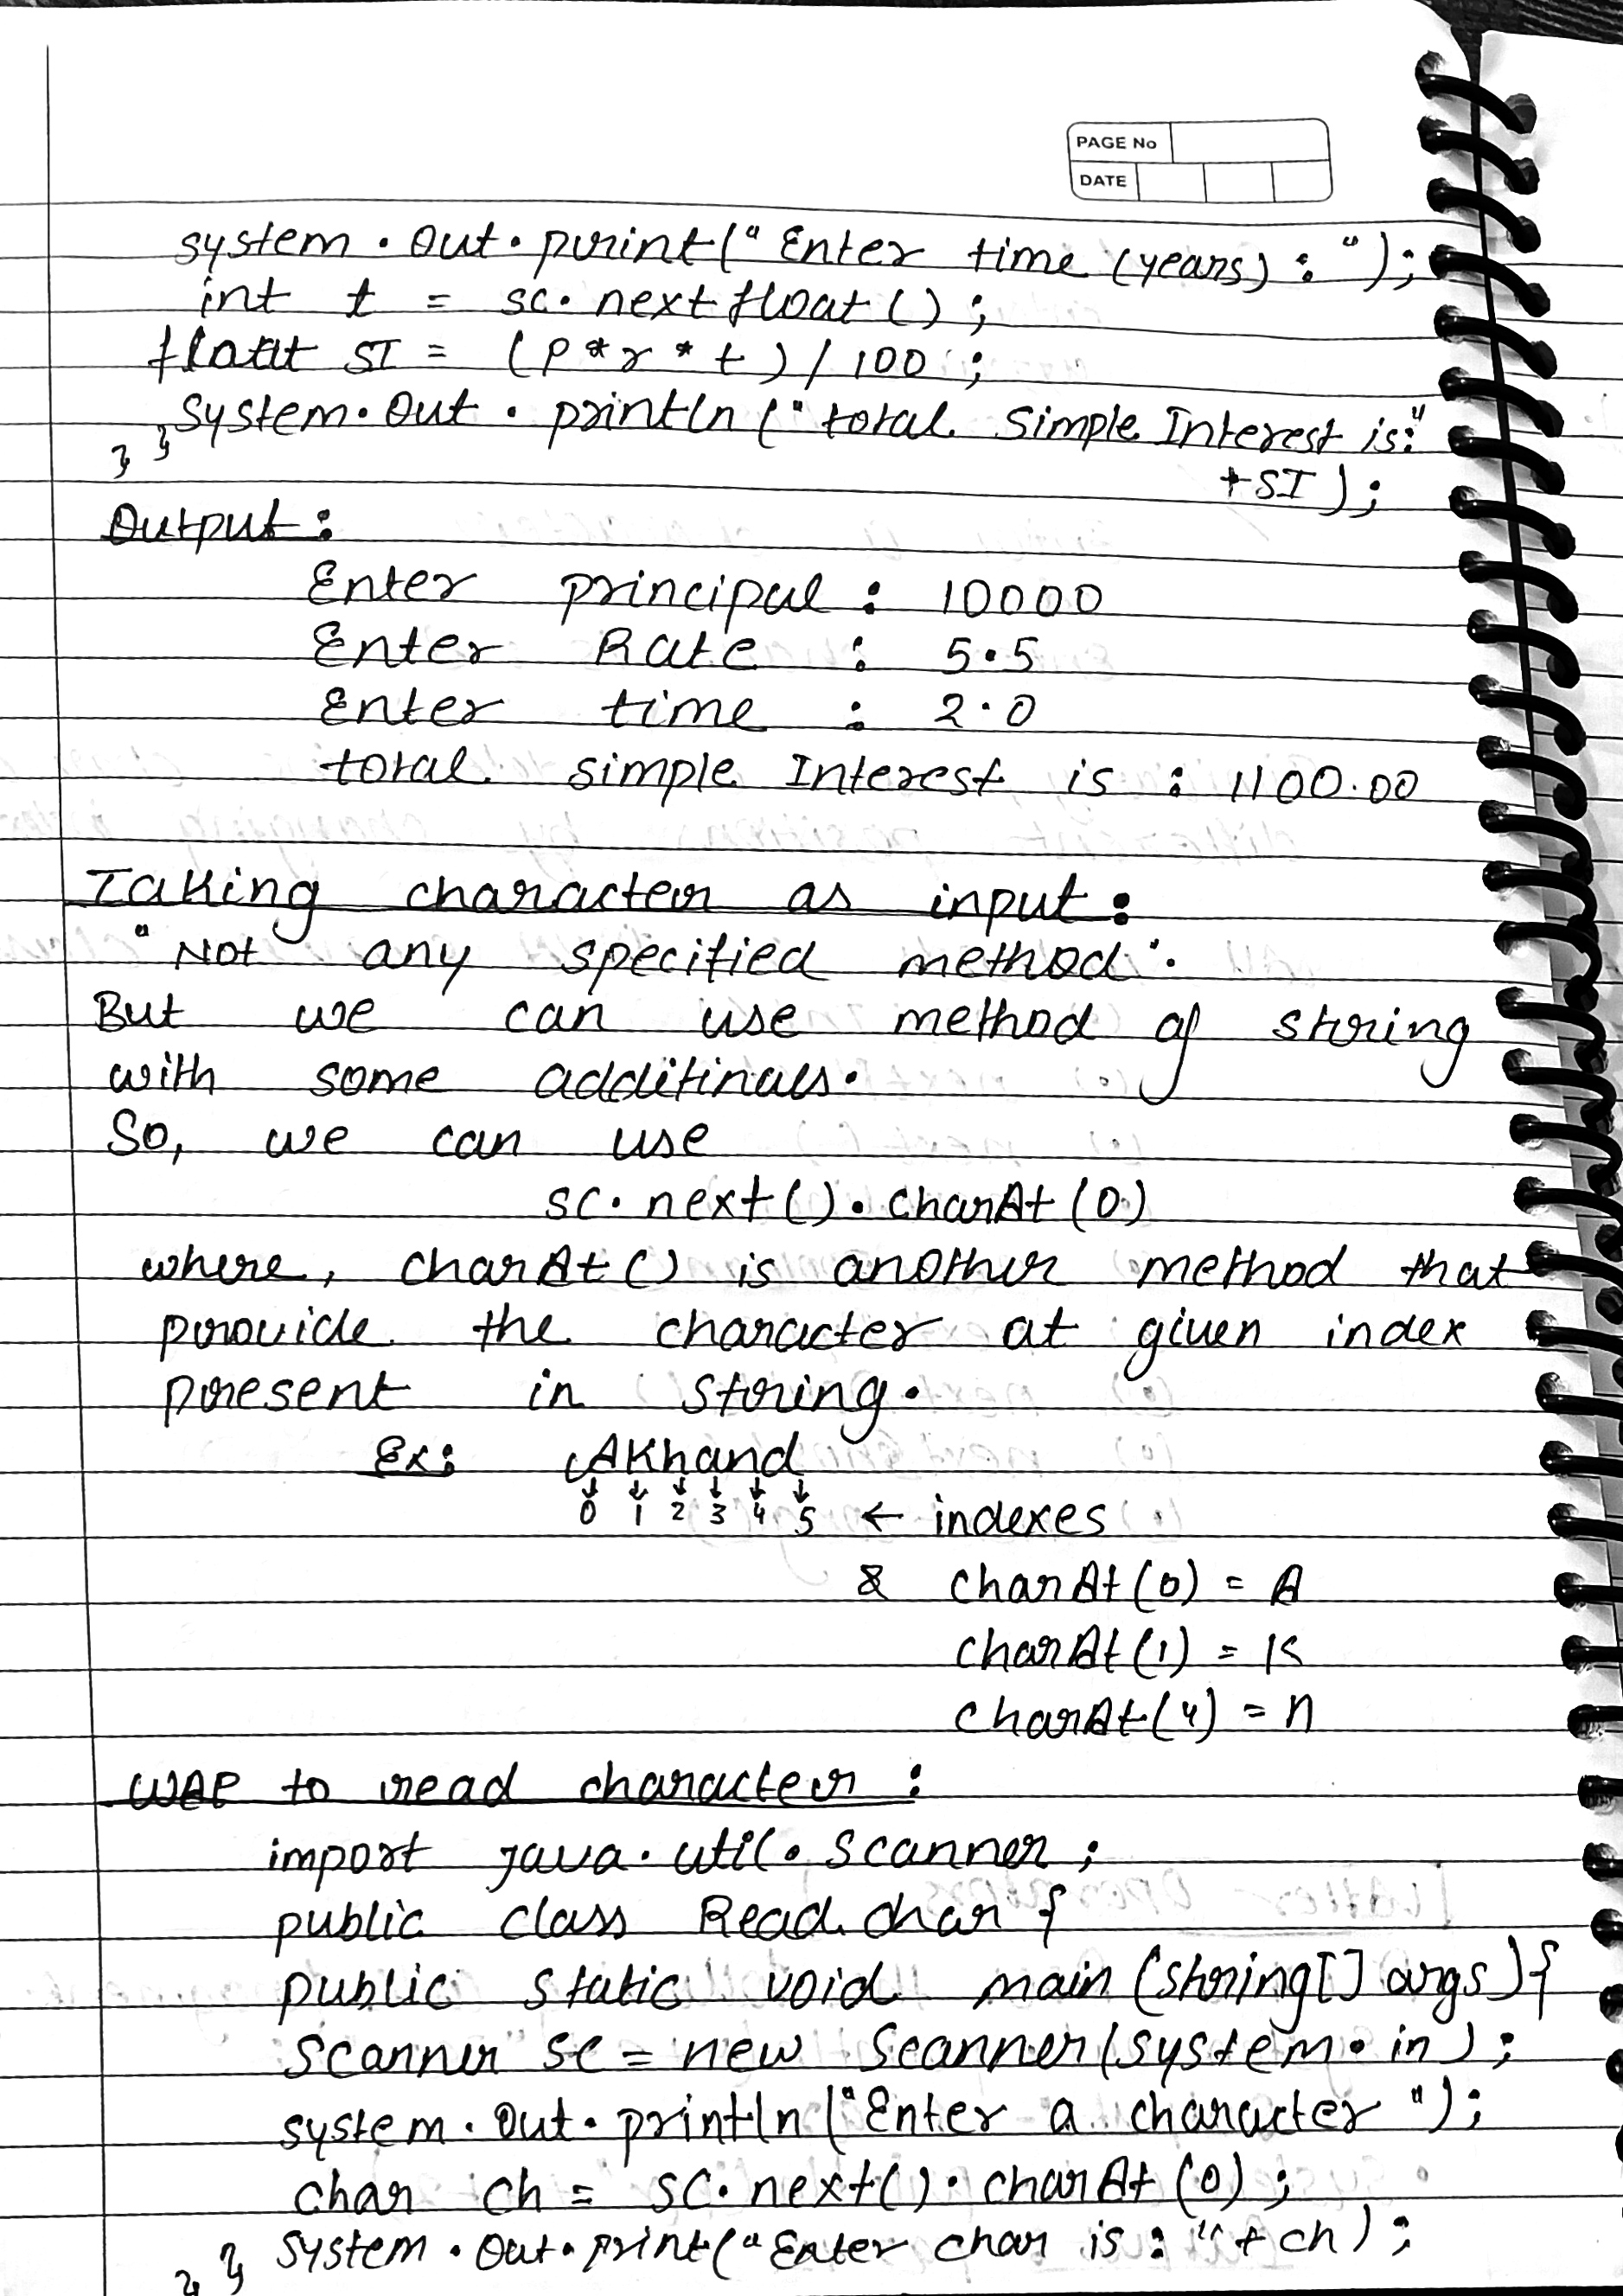 PAGE No
DATE
system.out.print("Enter time (years): ");
int t = sc.nextfloat();
float SI = (p*r*t)/100;
System.out.println("total Simple Interest is:"
+SI);
} }
Output:
Enter principal : 10000
Enter Rate : 5.5
Enter time : 2.0
total simple Interest is : 1100.00
Taking character as input:
"Not any specified method".
But we can use method of string
with some additinals.
So, we can use
sc.next().charAt(0)
where, charAt() is another method that
provide the character at given index
present in string.
Ex: AKhand
0 1 2 3 4 5 ← indexes
& charAt(0) = A
charAt(1) = K
charAt(4) = n
WAP to read character:
import java.util.Scanner;
public class Readchar{
public static void main(string[] args){
Scanner sc = new Scanner(system.in);
system.out.println("Enter a character");
char ch = sc.next().charAt(0);
} } System.out.print("Enter char is : "+ch);